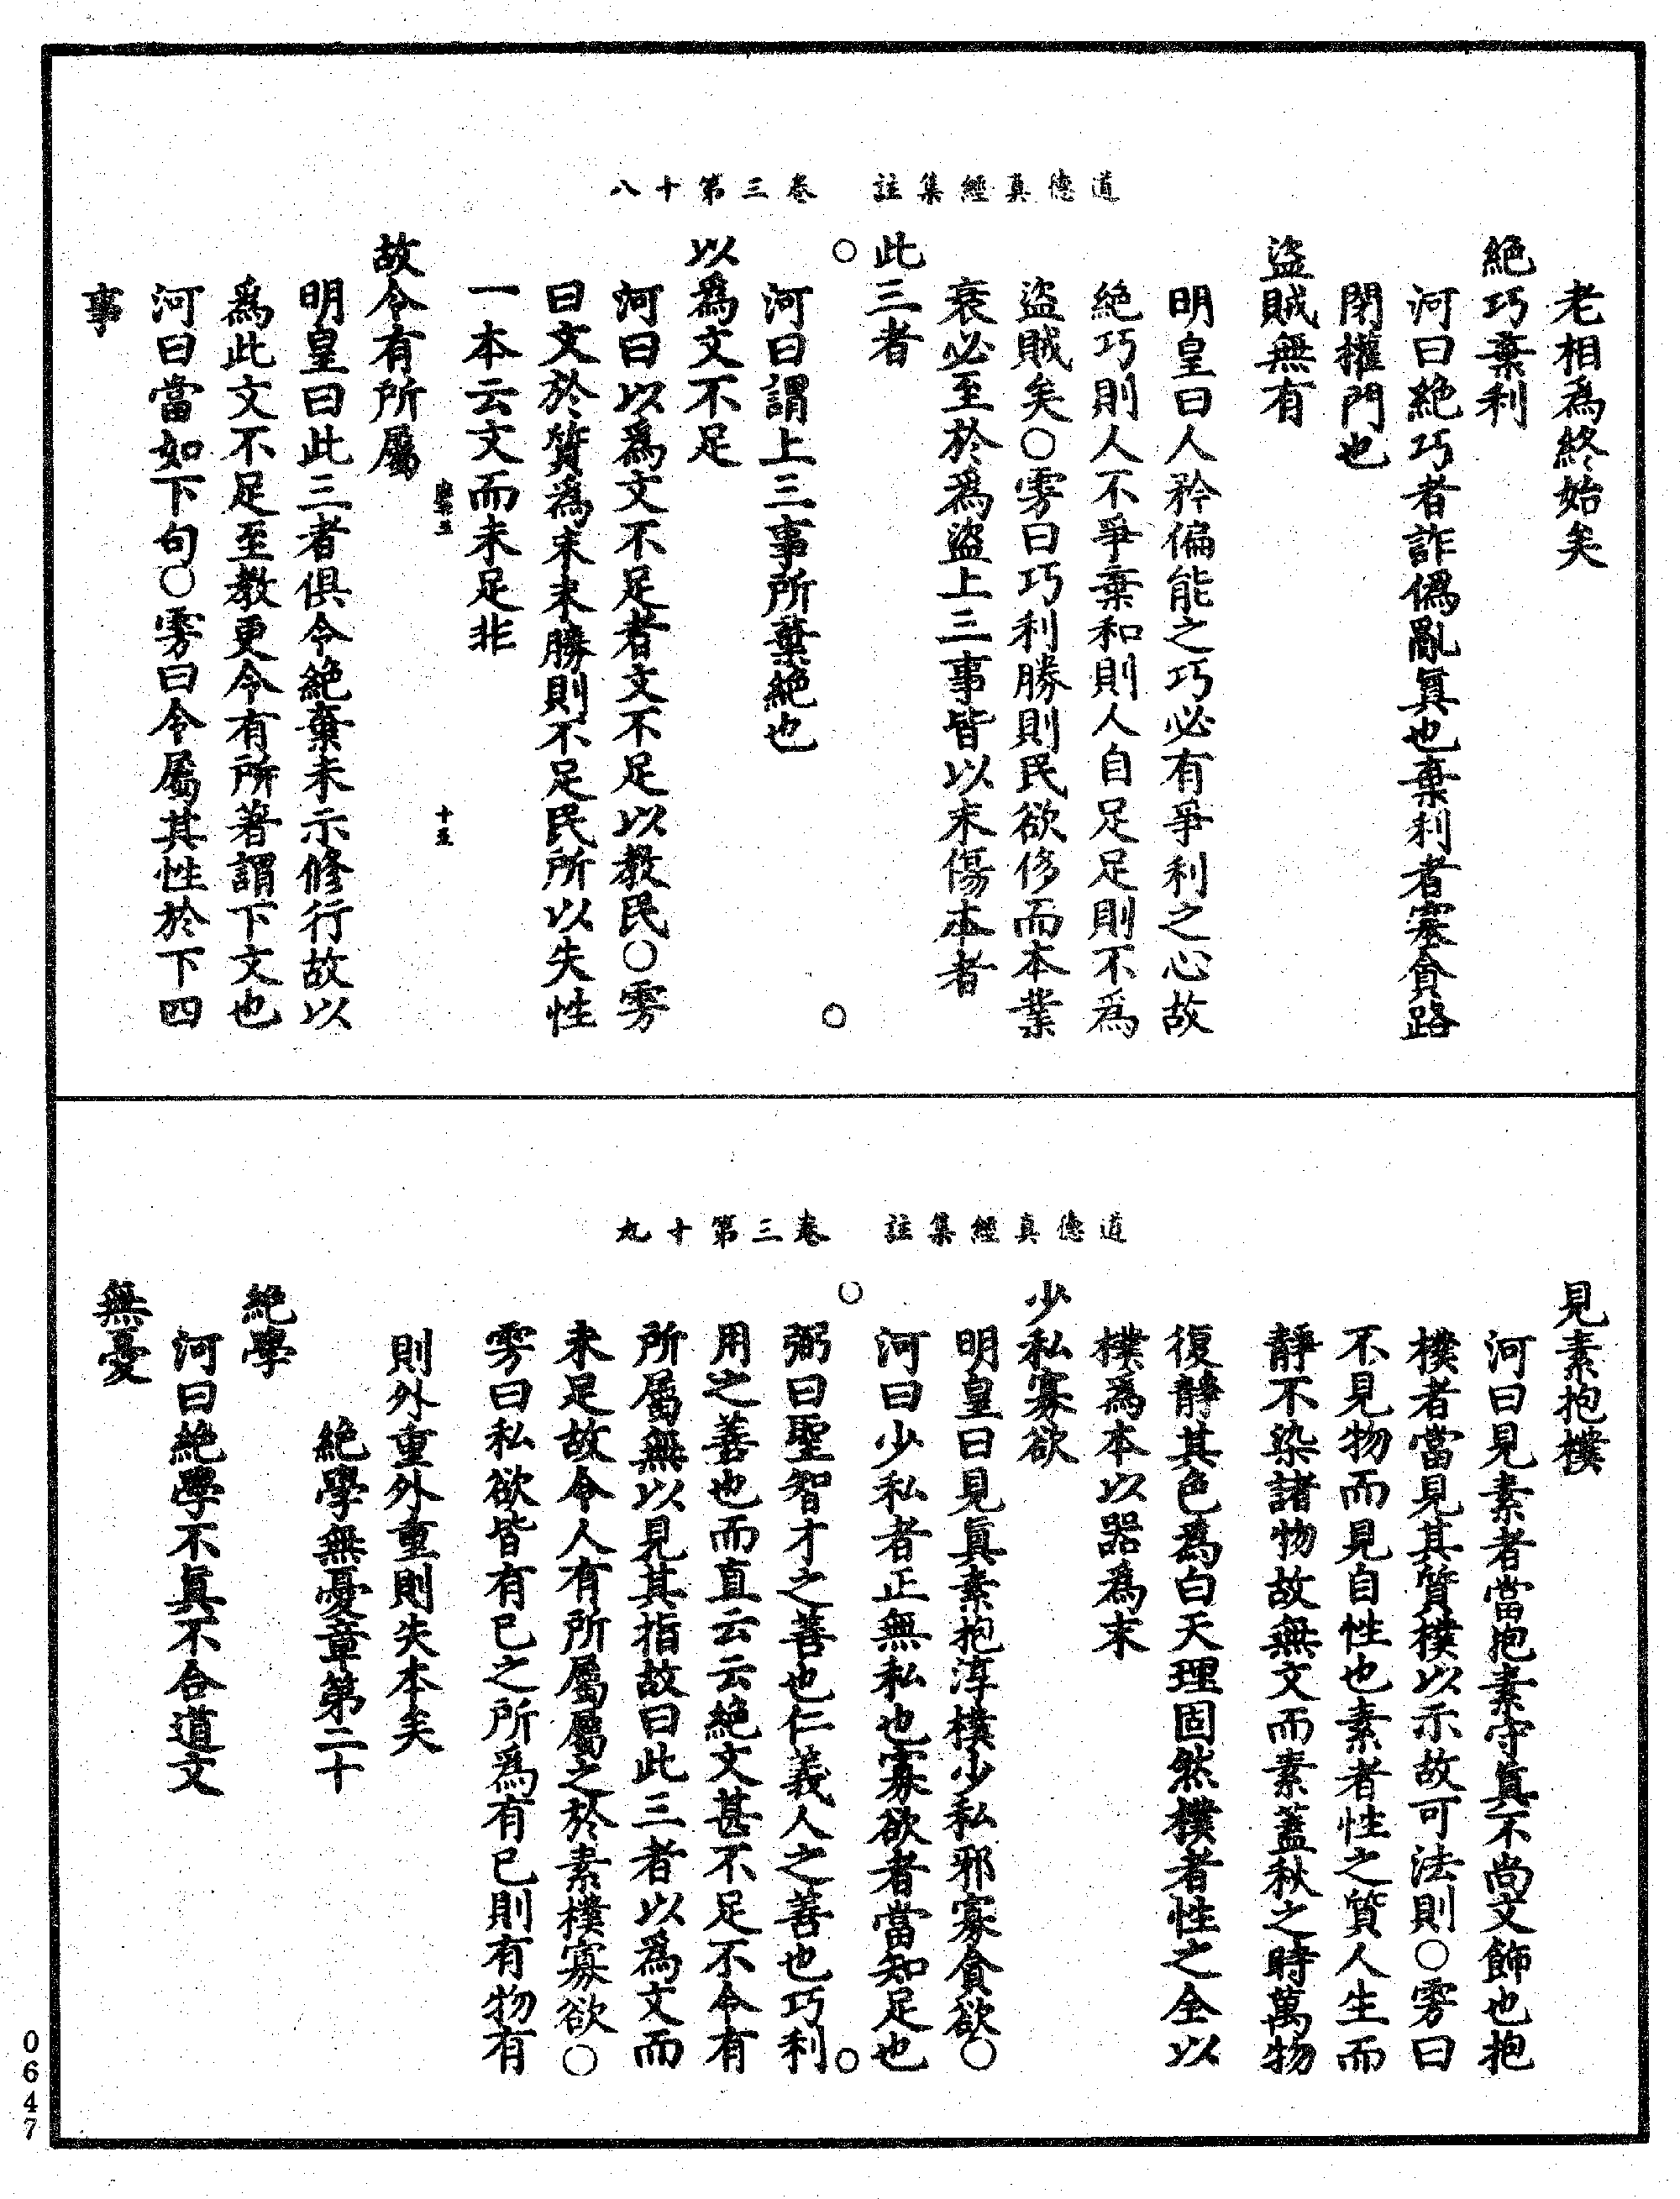 道德真經集註　卷三第十八
老相爲終始矣
絕巧棄利
河曰絕巧者詐僞亂眞也棄利者塞貪路
閉權門也
盜賊無有
明皇曰人矜偏能之巧必有爭利之心故
絕巧則人不爭棄和則人自足足則不爲
盜賊矣○雱曰巧利勝則民欲侈而本業
衰必至於爲盜上三事皆以末傷本者
此三者
河曰謂上三事所棄絕也
以爲文不足
河曰以爲文不足者文不足以教民○雱
曰文於質爲末末勝則不足民所以失性
一本云文而未足非
十五
故令有所屬
明皇曰此三者俱令絕棄未示修行故以
爲此文不足至教更令有所著謂下文也
河曰當如下句○雱曰令屬其性於下四
事
道德真經集註　卷三第十九
見素抱樸
河曰見素者當抱素守眞不尚文飾也抱
樸者當見其質樸以示故可法則○雱曰
不見物而見自性也素者性之質人生而
靜不染諸物故無文而素蓋秋之時萬物
復靜其色爲白天理固然樸者性之全以
樸爲本以器爲末
少私寡欲
明皇曰見眞素抱淳樸少私邪寡貪欲○
河曰少私者正無私也寡欲者當知足也
弼曰聖智才之善也仁義人之善也巧利
用之善也而直云云絕文甚不足不令有
所屬無以見其指故曰此三者以爲文而
未足故令人有所屬屬之於素樸寡欲○
雱曰私欲皆有已之所爲有已則有物有
則外重外重則失本矣
絕學無憂章第二十
絕學
河曰絕學不眞不合道文
無憂
0647